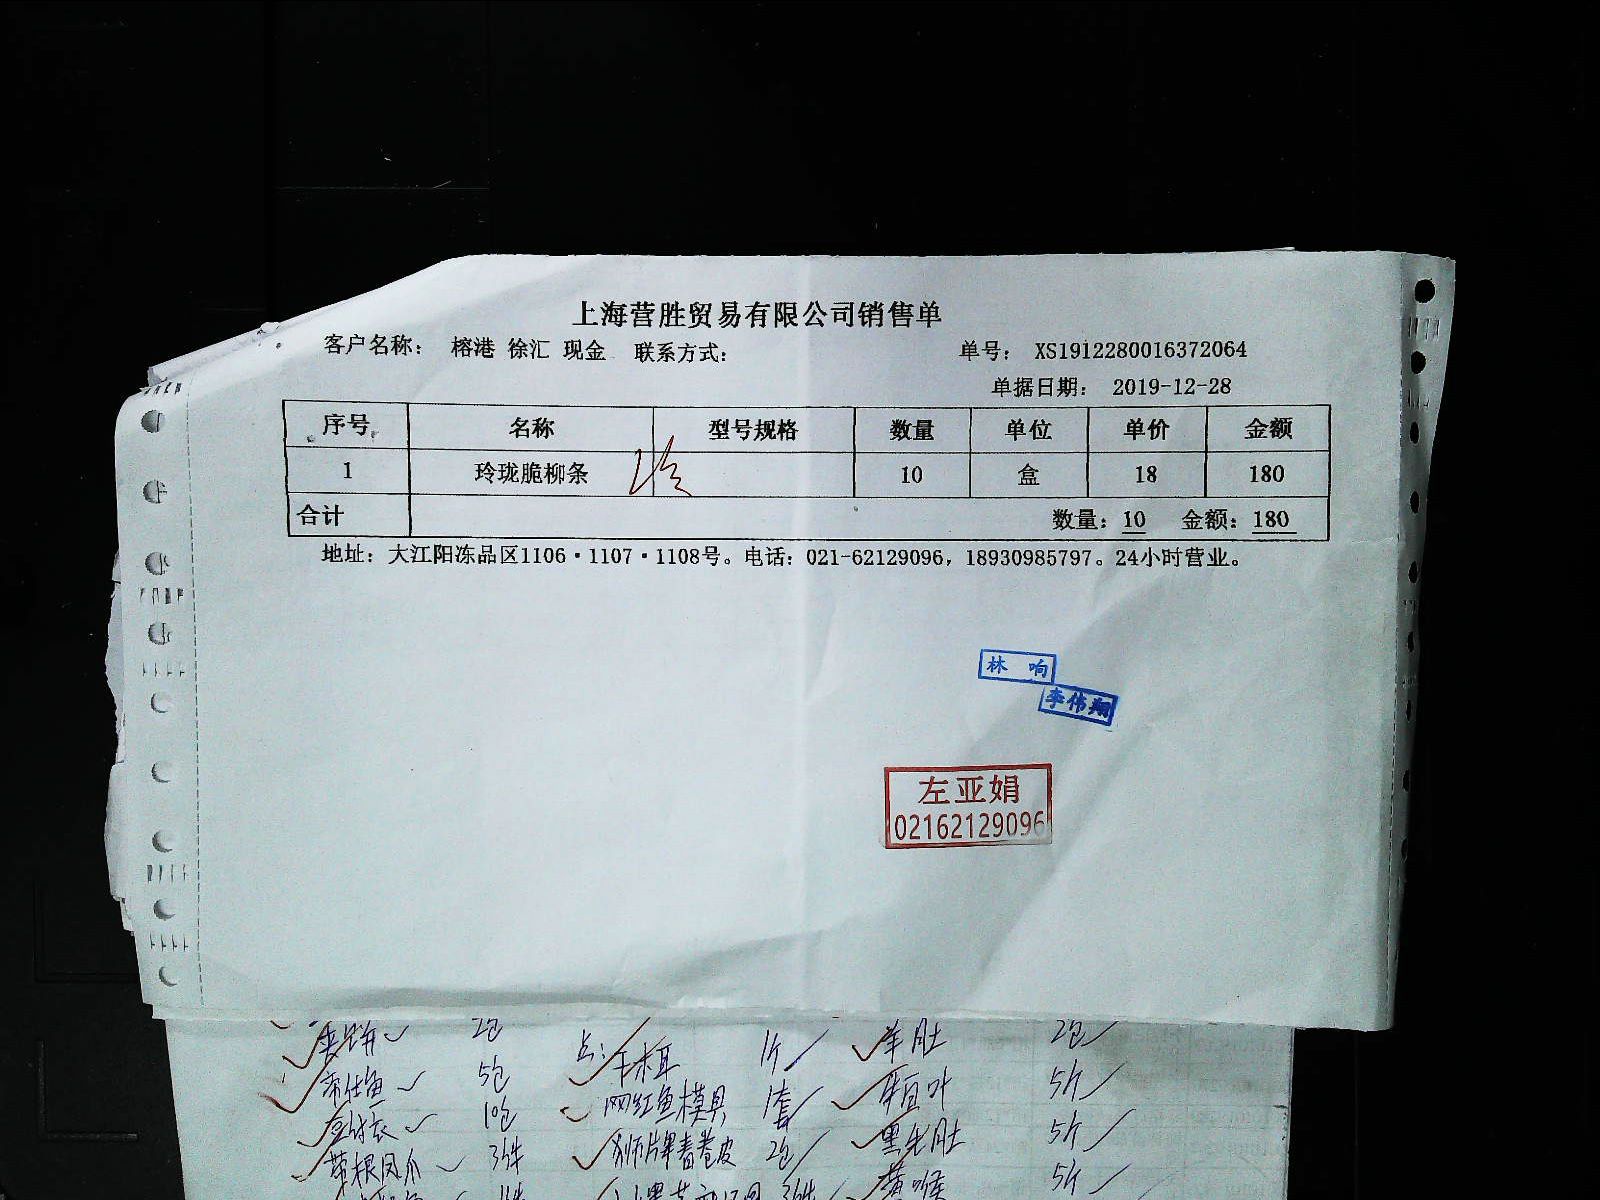 上海营胜贸易有限公司销售单
客户名称： 榕港 徐汇 现金 联系方式： 单号： XS1912280016372064
单据日期： 2019-12-28
序号 名称 型号规格 数量 单位 单价 金额
1 玲珑脆柳条 10 盒 18 180
合计 数量：10 金额：180
地址：大江阳冻品区1106·1107·1108号。电话：021-62129096，18930985797。24小时营业。
林 响
李伟翔
左亚娟
02162129096
2包 点： 干木耳 1斤 羊肚 2包
5包 网红鱼模具 1套 5斤
10包 狮牌春卷皮 2包 5斤
带根凤爪 3件 黄喉 5斤